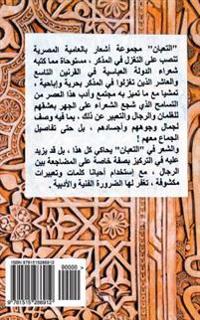 "التعبان" مجموعة أشعار بالعامية المصرية
تنصب على التغزل في المذكر ، مستوحاة مما كتبه
شعراء الدولة العباسية في القرنين التاسع
والعاشر الذين تغزلوا في المذكر بحرية وإباحية
تمشيا مع ما تميز به مجتمع وأدب هذا العصر من
التسامح الذي شجع الشعراء على الجهر بعشقهم
للغلمان والرجال والتعبير عن ذلك ، بما فيه وصف
لجمال وجوههم وأجسادهم ، بل حتى تفاصيل
الجماع معهم !
والشعر في "التعبان" يحاكي كل هذا ، بل قد يزيد
عليه في التركيز بصفة خاصة على المضاجعة بين
الرجال ، مع إستخدام أحيانا كلمات وتعبيرات
مكشوفة ، تغفر لها الضرورة الفنية والأدبية .
ISBN 9781515286912
90000
9 781515 286912